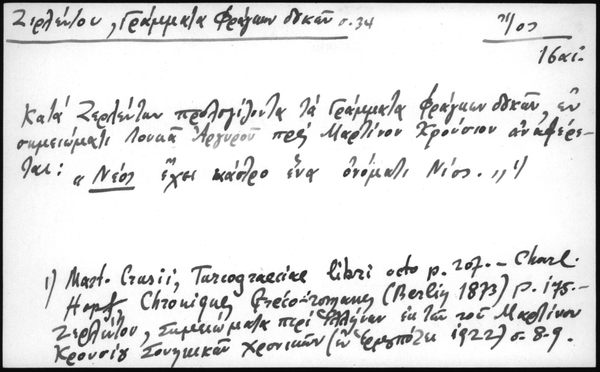 Ζερλέντου, Γράμματα Φράγκων δουκῶν σ. 34
Ἴος
16 αἰ.
Κατά Ζερλέντην προλογίζοντα τά Γράμματα Φράγκων δουκῶν, ἐν
σημειώματι Λουκᾶ Ἀργυροῦ πρός Μαρτῖνον Κρούσιον ἀναφέρε-
ται:
"Νέος ἔχει κάστρο ἕνα ὀνόματι Νέος." 1)
1) Mart. Crusii, Turcograeciae libri octo p. 207. - Charl.
Hopf, Chroniques Gréco-romanes (Berlin 1873) p. 175.-
Ζερλέντου, Σημειώματα περί Ἑλλήνων ἐκ τῶν τοῦ Μαρτίνου
Κρουσίου Σουηκικῶν χρονικῶν (ἐν Ἑρμουπόλει 1922) σ. 8-9.